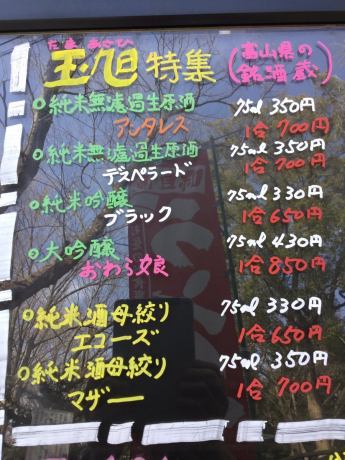 たまあさひ
玉旭 特集 (富山県の銘酒蔵)
○純米無濾過生原酒 75ml 350円
アンタレス 1合 700円
○純米無濾過生原酒 75ml 350円
デスペラード 1合 700円
○純米吟醸 75ml 330円
ブラック 1合 650円
○大吟醸 75ml 430円
おわら娘 1合 850円
○純米酒母搾り 75ml 330円
エコーズ 1合 650円
○純米酒母絞り 75ml 350円
マザー 1合 700円